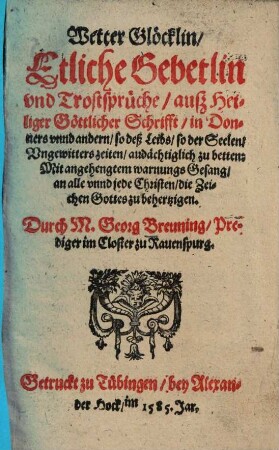 Wetter Glöcklin/
Etliche Gebetlin
vnd Trostsprüche/ auß Hei-
liger Göttlicher Schrifft/ in Don-
ners vnnd andern/ so deß Leibs/ so der Seelen/
Vngewitters zeiten/ andächtiglich zu betten:
Mit angehengtem warnungs Gesang/
an alle vnnd jede Christen/ die Zei-
chen Gottes zu behertzigen.
Durch M. Georg Breuning/ Pre-
diger im Closter zu Rauenspurg.
Getruckt zu Tübingen/ bey Alexan-
der Hock/ im 1585. Jar.